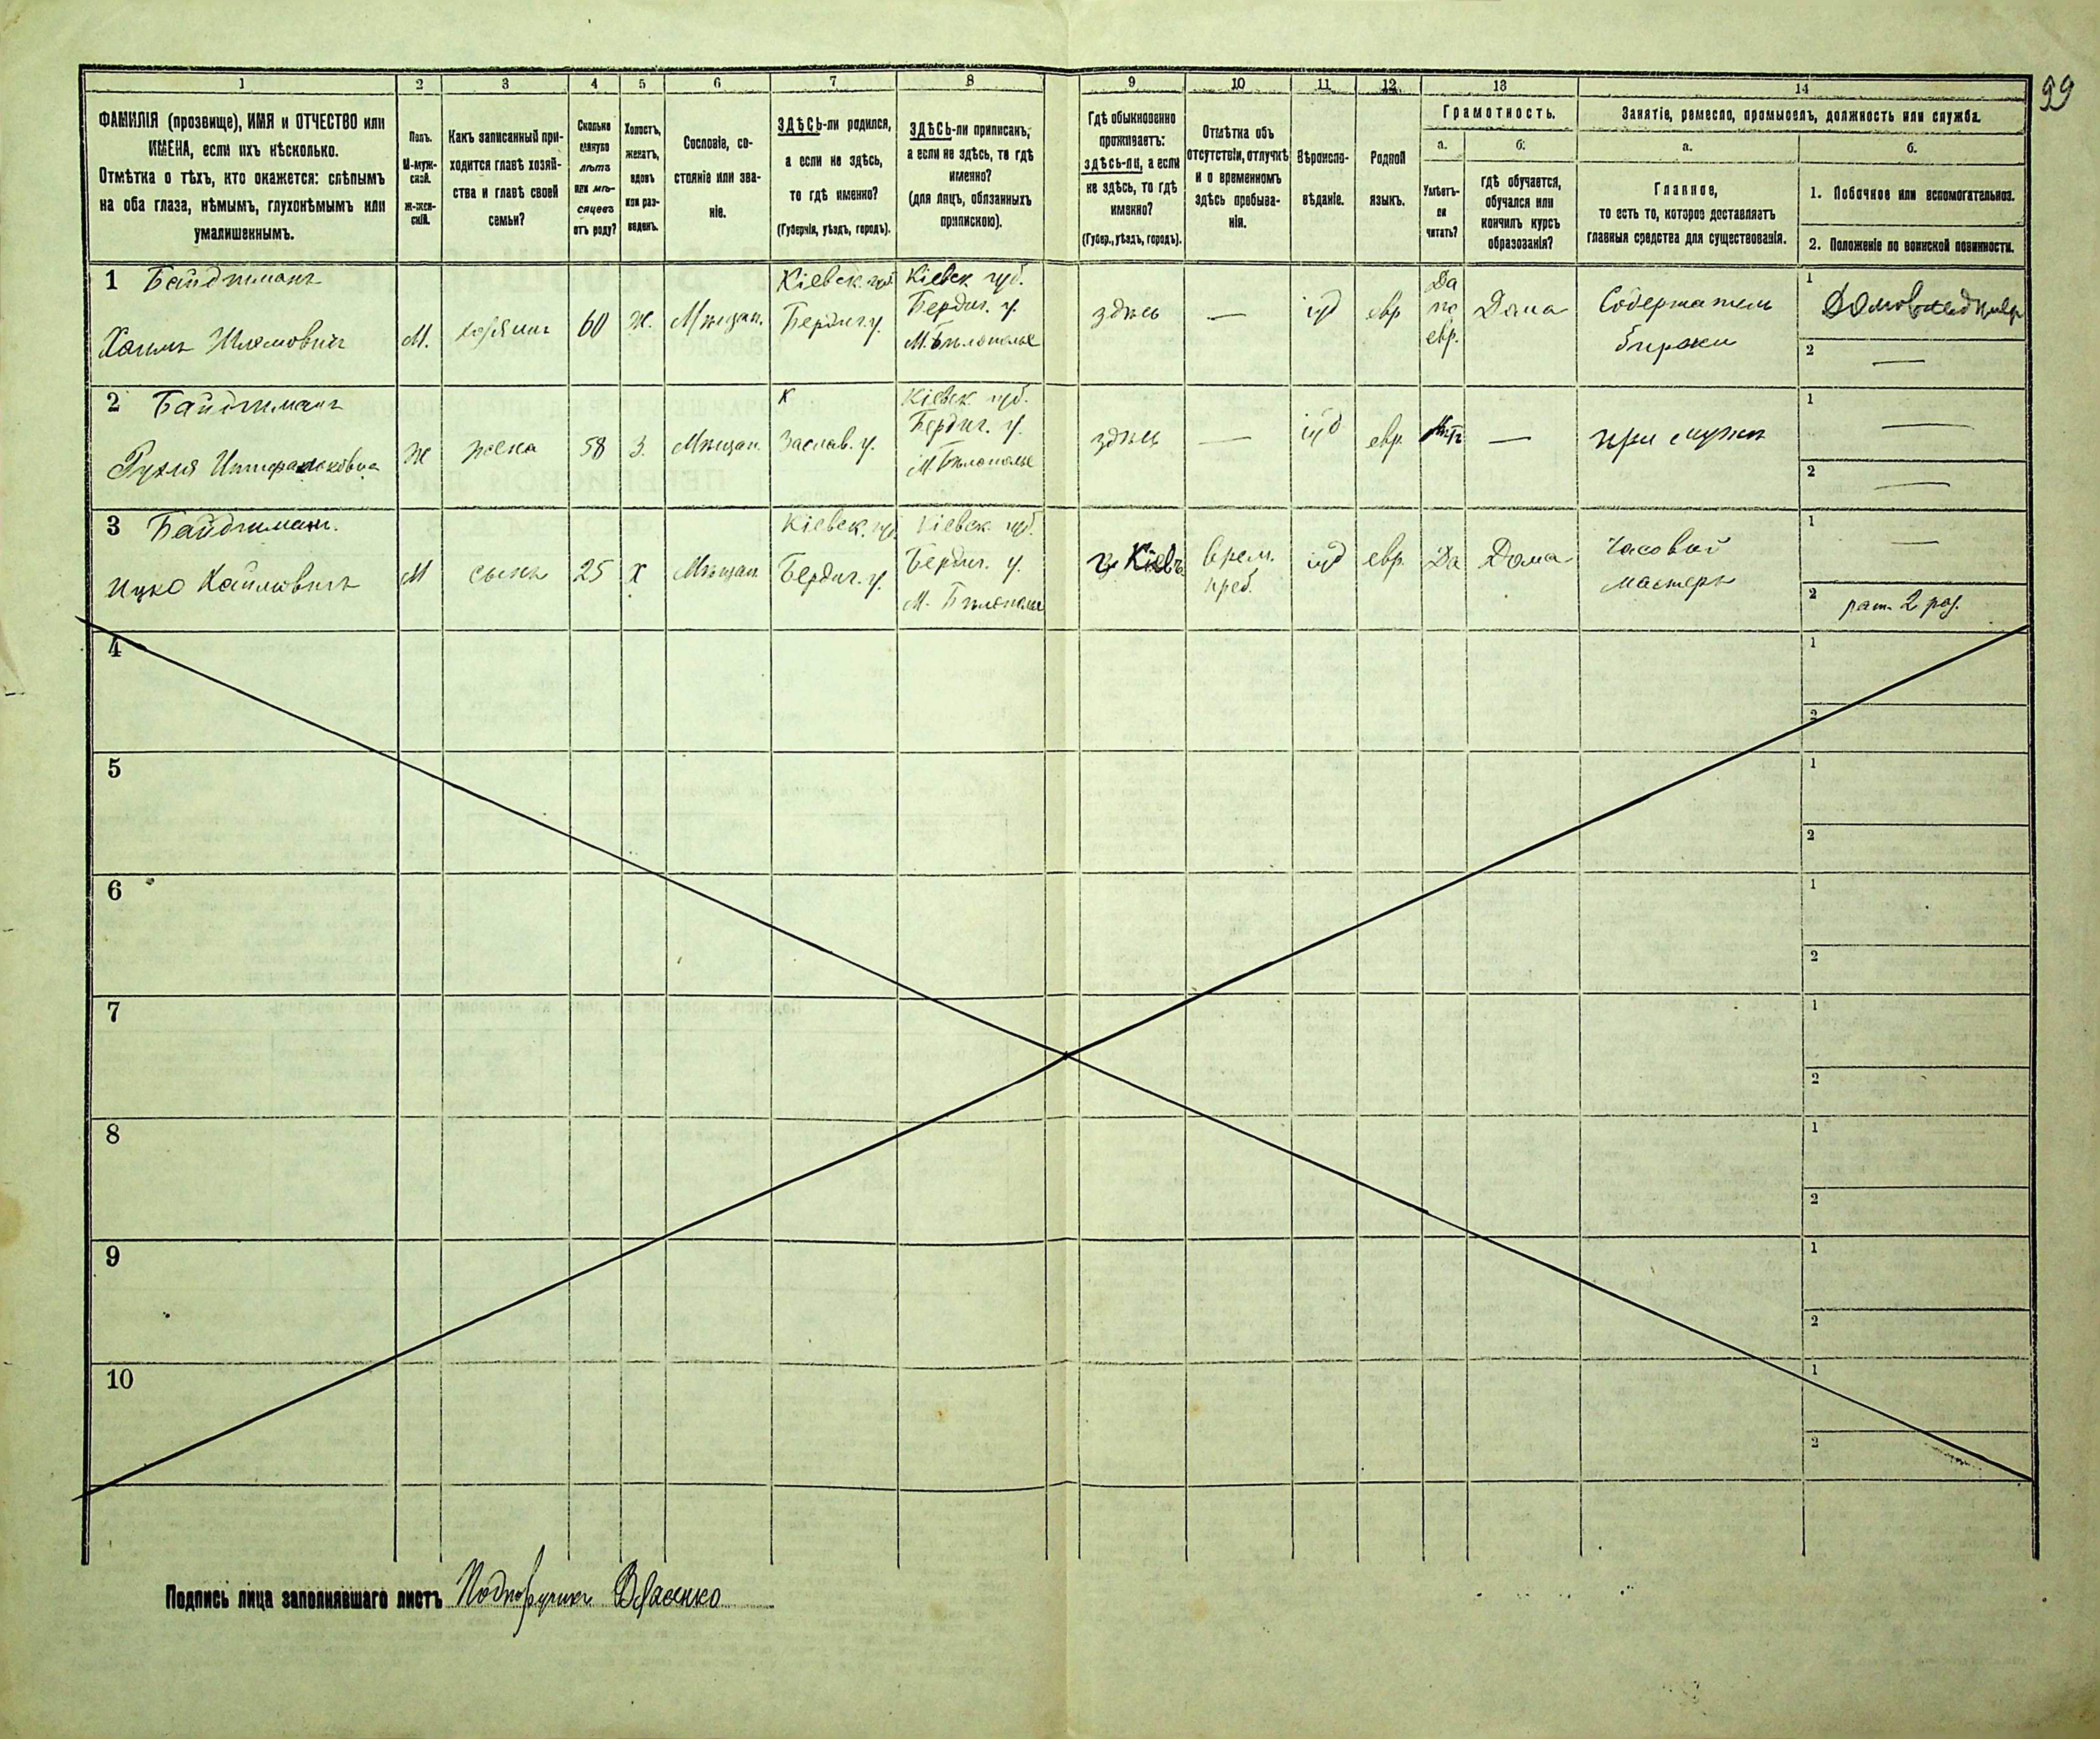 99
1 2 3 4 5 6 7 8 9 10 11 12 13 14
ФАМИЛІЯ (прозвище), ИМЯ и ОТЧЕСТВО или
ИМЕНА, если ихъ нѣсколько.
Отмѣтка о тѣхъ, кто окажется: слѣпымъ
на оба глаза, нѣмымъ, глухонѣмымъ или
умалишеннымъ.
Полъ.
М-муж-
ской.
Ж-жен-
скій.
Какъ записанный при-
ходится главѣ хозяй-
ства и главѣ своей
семьи?
Сколько
минуло
лѣтъ
или мѣ-
сяцевъ
отъ роду?
Холостъ,
женатъ,
вдовъ
или раз-
веденъ.
Сословіе, со-
стояніе или зва-
ніе.
ЗДѢСЬ-ли родился,
а если не здѣсь,
то гдѣ именно?
(Губернія, уѣздъ, городъ).
ЗДѢСЬ-ли приписанъ,
а если не здѣсь, то гдѣ
именно?
(для лицъ, обязанныхъ
припискою).
Гдѣ обыкновенно
проживаетъ:
здѣсь-ли, а если
не здѣсь, то гдѣ
именно?
(Губер., уѣздъ, городъ).
Отмѣтка объ
отсутствіи, отлучкѣ
и о временномъ
здѣсь пребыва-
ніи.
Вѣроиспо-
вѣданіе.
Родной
языкъ.
Грамотность.
а.
Умѣетъ-
ли
читать?
б.
гдѣ обучается,
обучался или
кончилъ курсъ
образованія?
Занятіе, ремесло, промыселъ, должность или служба.
а.
Главное,
то есть то, которое доставляетъ
главныя средства для существованія.
б.
1. Побочное или вспомогательное.
2. Положеніе по воинской повинности.
1 Байдтманъ
Хаимъ Шлемовичъ
М.
хозяинъ
60
Ж.
Мѣщан.
Кіевск. губ.
Бердич. у.
Кіевск губ.
Бердич. у.
М. Бѣлополье
здѣсь
—
іуд
евр
Да
по
евр.
Дома
Содержатель
биржи
1
2 —
2 Байдтманъ
Рухля
Ж
жена
58
З.
Мѣщан.
К
Заслав. у.
Кіевск. губ.
Бердич. у.
М. Бѣлополье
здѣсь
—
іуд
евр.
Нѣтъ
—
при мужѣ
1 —
2 —
3 Байдтманъ.
Ицко Хаимовичъ
М
сынъ
25
х
Мѣщан.
Кіевск. губ.
Бердич. у.
Кіевск. губ.
Бердич. у.
М. Бѣлополье
г. Кіевъ
Врем.
преб.
іуд
евр
Да
Дома
Часовой
мастеръ
1 —
2 рат. 2 раз.
4 1
2
5 1
2
6 1
2
7 1
2
8 1
2
9 1
2
10 1
2
Подпись лица заполнявшаго листъ Подпоручикъ Власенко